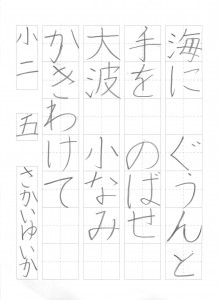 海に ぐうんと
手を のばせ
大波 小なみ
かきわけて
小二 五 さかいゆいか